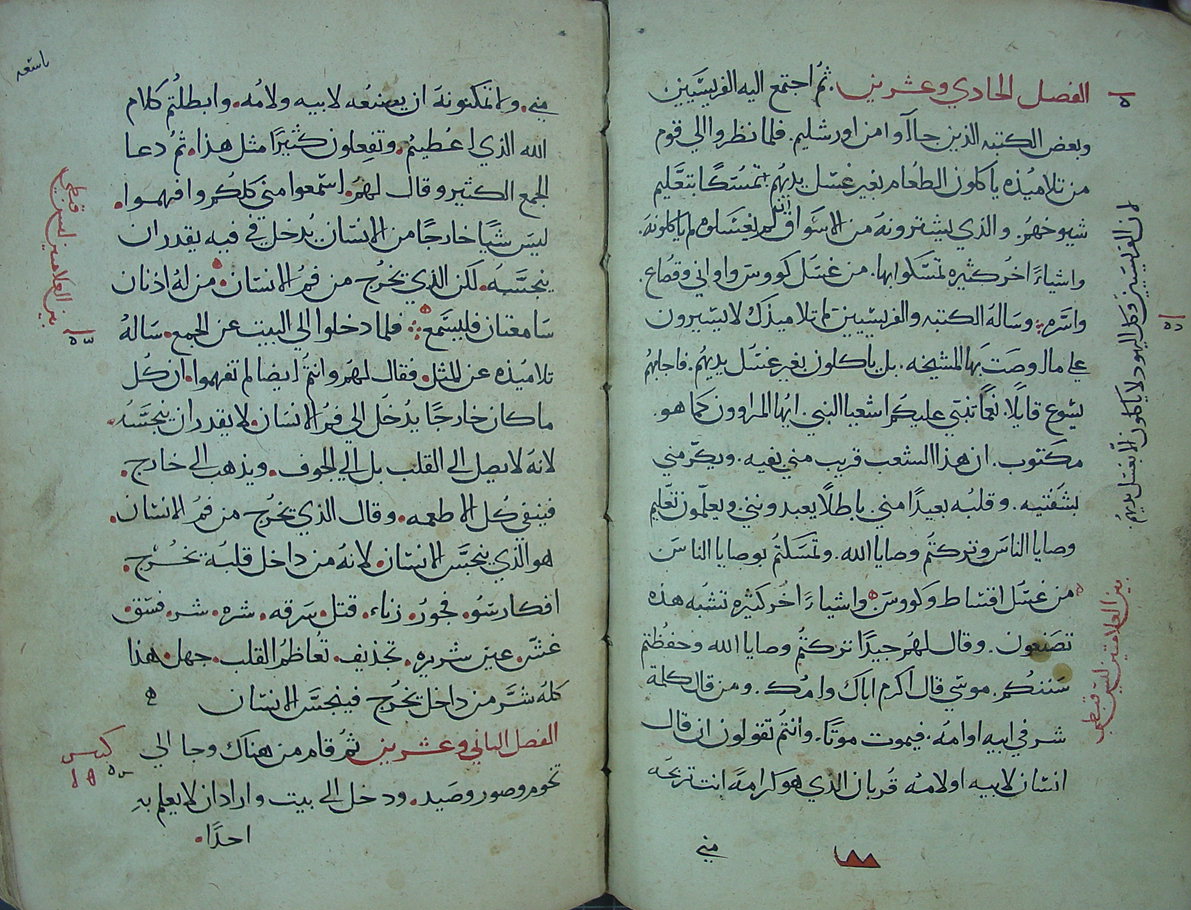 الفصل الحادي وعشرين. ثم اجتمع اليه الفريسيين
وبعض الكتبه الذين جاآوا من اورشليم. فلما نظروا الي قوم
من تلاميذه ياكلون الطعام بغير غسل يديهم تمسكا بتعليم
شيوخهم. والذي يشترونه من الاسواق ان لم يغسلوه لم ياكلونه.
واشياءً اخر كثيره تمسكوا بها. من غسل كووس واواني وقصاع
واسره وساله الكتبه والفريسيين لم تلاميذك لا يسيرون
علي ما وصت بها المشيخه. بل ياكلون بغير غسل يديهم. فاجابهم
يسوع قايلا. نعما تنبي عليكم اشعيا النبي. ايها المراوون كما هو
مكتوب. ان هذا الشعب قريب مني بفيه. ويكرمني
بشفتيه. وقلبه بعيدًا مني. باطلًا يعبدونني. ويعلمون تعليم
وصايا الناس وتركتم وصايا الله. وتمسكتم بوصايا الناس
من غسل اقساط وكووس واشياءً اخر كثيره تشبه هذه
تصنعون. وقال لهم جيدًا تركتم وصايا الله وحفظتم
سننكم. موسي قال اكرم اباك وامك. ومن قال كلمة
شر في ابيه او امه. فيموت موتًا. وانتم تقولون ان قال
انسان لابيه او لامه قربان الذي هو كرامه انت تربحه
مني
لان الفريسيين وكل اليهود لا ياكلون الا بغسل يديهم
بين العلامتين ليس قبطي
تاسعه
مني. ولا تمكنونه ان يصنعه لابيه ولامه. وابطلتم كلام
الله الذي اعطيتم. وتفعلون كثيرًا مثل هذا. ثم دعا
الجمع الكثير وقال لهم. اسمعوا مني كلكم وافهموا.
ليس شيًا خارجًا من الانسان يدخل في فيه يقدر ان
ينجسه. لكن الذي يخرج من فم الانسان. من له اذنان
سامعتان فليسمع فلما دخلوا الي البيت عن الجمع. ساله
تلاميذه عن المثل. فقال لهم وانتم ايضا لم تفهموا. ان كل
ما كان خارجًا يدخل الي فم الانسان. لا يقدر ان ينجسه.
لانه لا يصل الي القلب بل الي الجوف. ويذهب الي خارج.
فينقي كل الاطعمه. وقال الذي يخرج من فم الانسان.
هو الذي ينجس الانسان لانه من داخل قلبه تخرج.
افكار سو. فجور. زناء. قتل. سرقه. شره. شر. فسق.
غش. عين شريره. تجذيف. تعاظم القلب. جهل. هذا
كله شر من داخل يخرج فينجس الانسان
الفصل الثاني وعشرين ثم قام من هناك وجا الي
تخوم وصور وصيد. ودخل الي بيت واراد ان لا يعلم به
احدًا.
بين العلامتين ليس قبطي